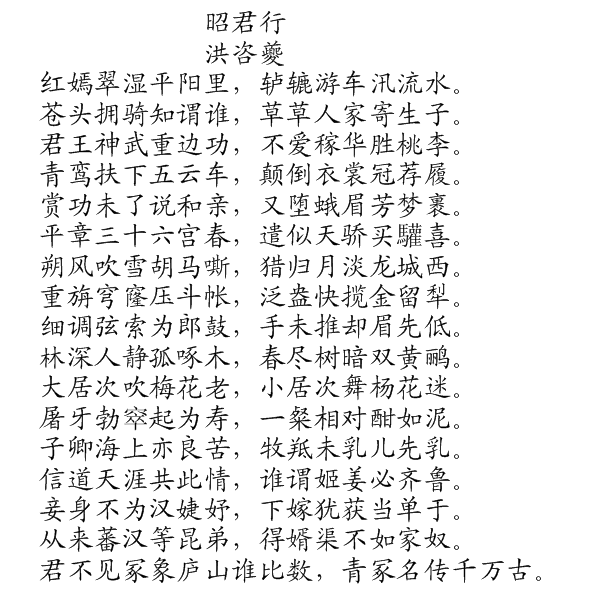 昭君行
洪咨夔
红嫣翠湿平阳里，轳辘游车汛流水。
苍头拥骑知谓谁，草草人家寄生子。
君王神武重边功，不爱稼华胜桃李。
青鸾扶下五云车，颠倒衣裳冠荐履。
赏功未了说和亲，又堕蛾眉芳梦裹。
平章三十六宫春，遣似天骄买驩喜。
朔风吹雪胡马嘶，猎归月淡龙城西。
重旃穹窿压斗帐，泛盎快揽金留犁。
细调弦索为郎鼓，手未推却眉先低。
林深人静孤啄木，春尽树暗双黄鹂。
大居次吹梅花老，小居次舞杨花迷。
屠牙勃窣起为寿，一粲相对酣如泥。
子卿海上亦良苦，牧羝未乳儿先乳。
信道天涯共此情，谁谓姬姜必齐鲁。
妾身不为汉婕妤，下嫁犹获当单于。
从来蕃汉等昆弟，得婿渠不如家奴。
君不见冢象庐山谁比数，青冢名传千万古。